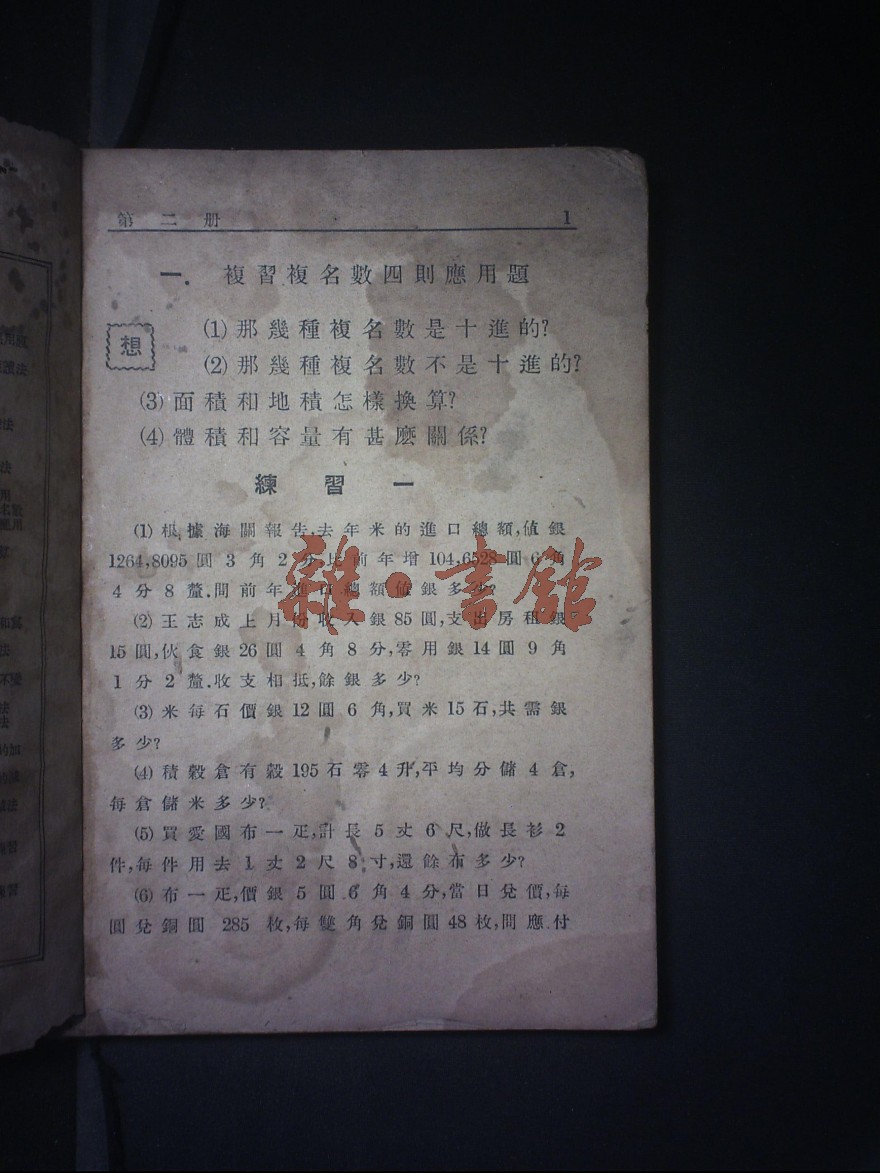 第二册 1
一. 複習複名數四則應用題
想
(1) 那幾種複名數是十進的?
(2) 那幾種複名數不是十進的?
(3) 面積和地積怎樣換算?
(4) 體積和容量有甚麼關係?
練習一
(1) 根據海關報告,去年米的進口總額,值銀
1264,8095圓3角2分比前年增104,6528圓6角
4分8釐.問前年進口總額值銀多少?
(2) 王志成上月份收入銀85圓,支出房租銀
15圓,伙食銀26圓4角8分,零用銀14圓9角
1分2釐.收支相抵,餘銀多少?
(3) 米每石價銀12圓6角,買米15石,共需銀
多少?
(4) 積穀倉有穀195石零4升,平均分儲4倉,
每倉儲米多少?
(5) 買愛國布一疋,計長5丈6尺,做長衫2
件,每件用去1丈2尺8寸,還餘布多少?
(6) 布一疋,價銀5圓6角4分,當日兌價,每
圓兌銅圓285枚,每雙角兌銅圓48枚,問應付
雜·書館